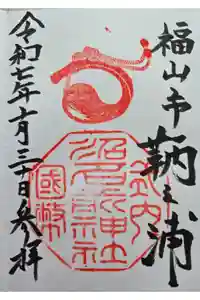 福山市鞆之浦
式内
沼名前神社
國幣
令和七年十月三十日参拝